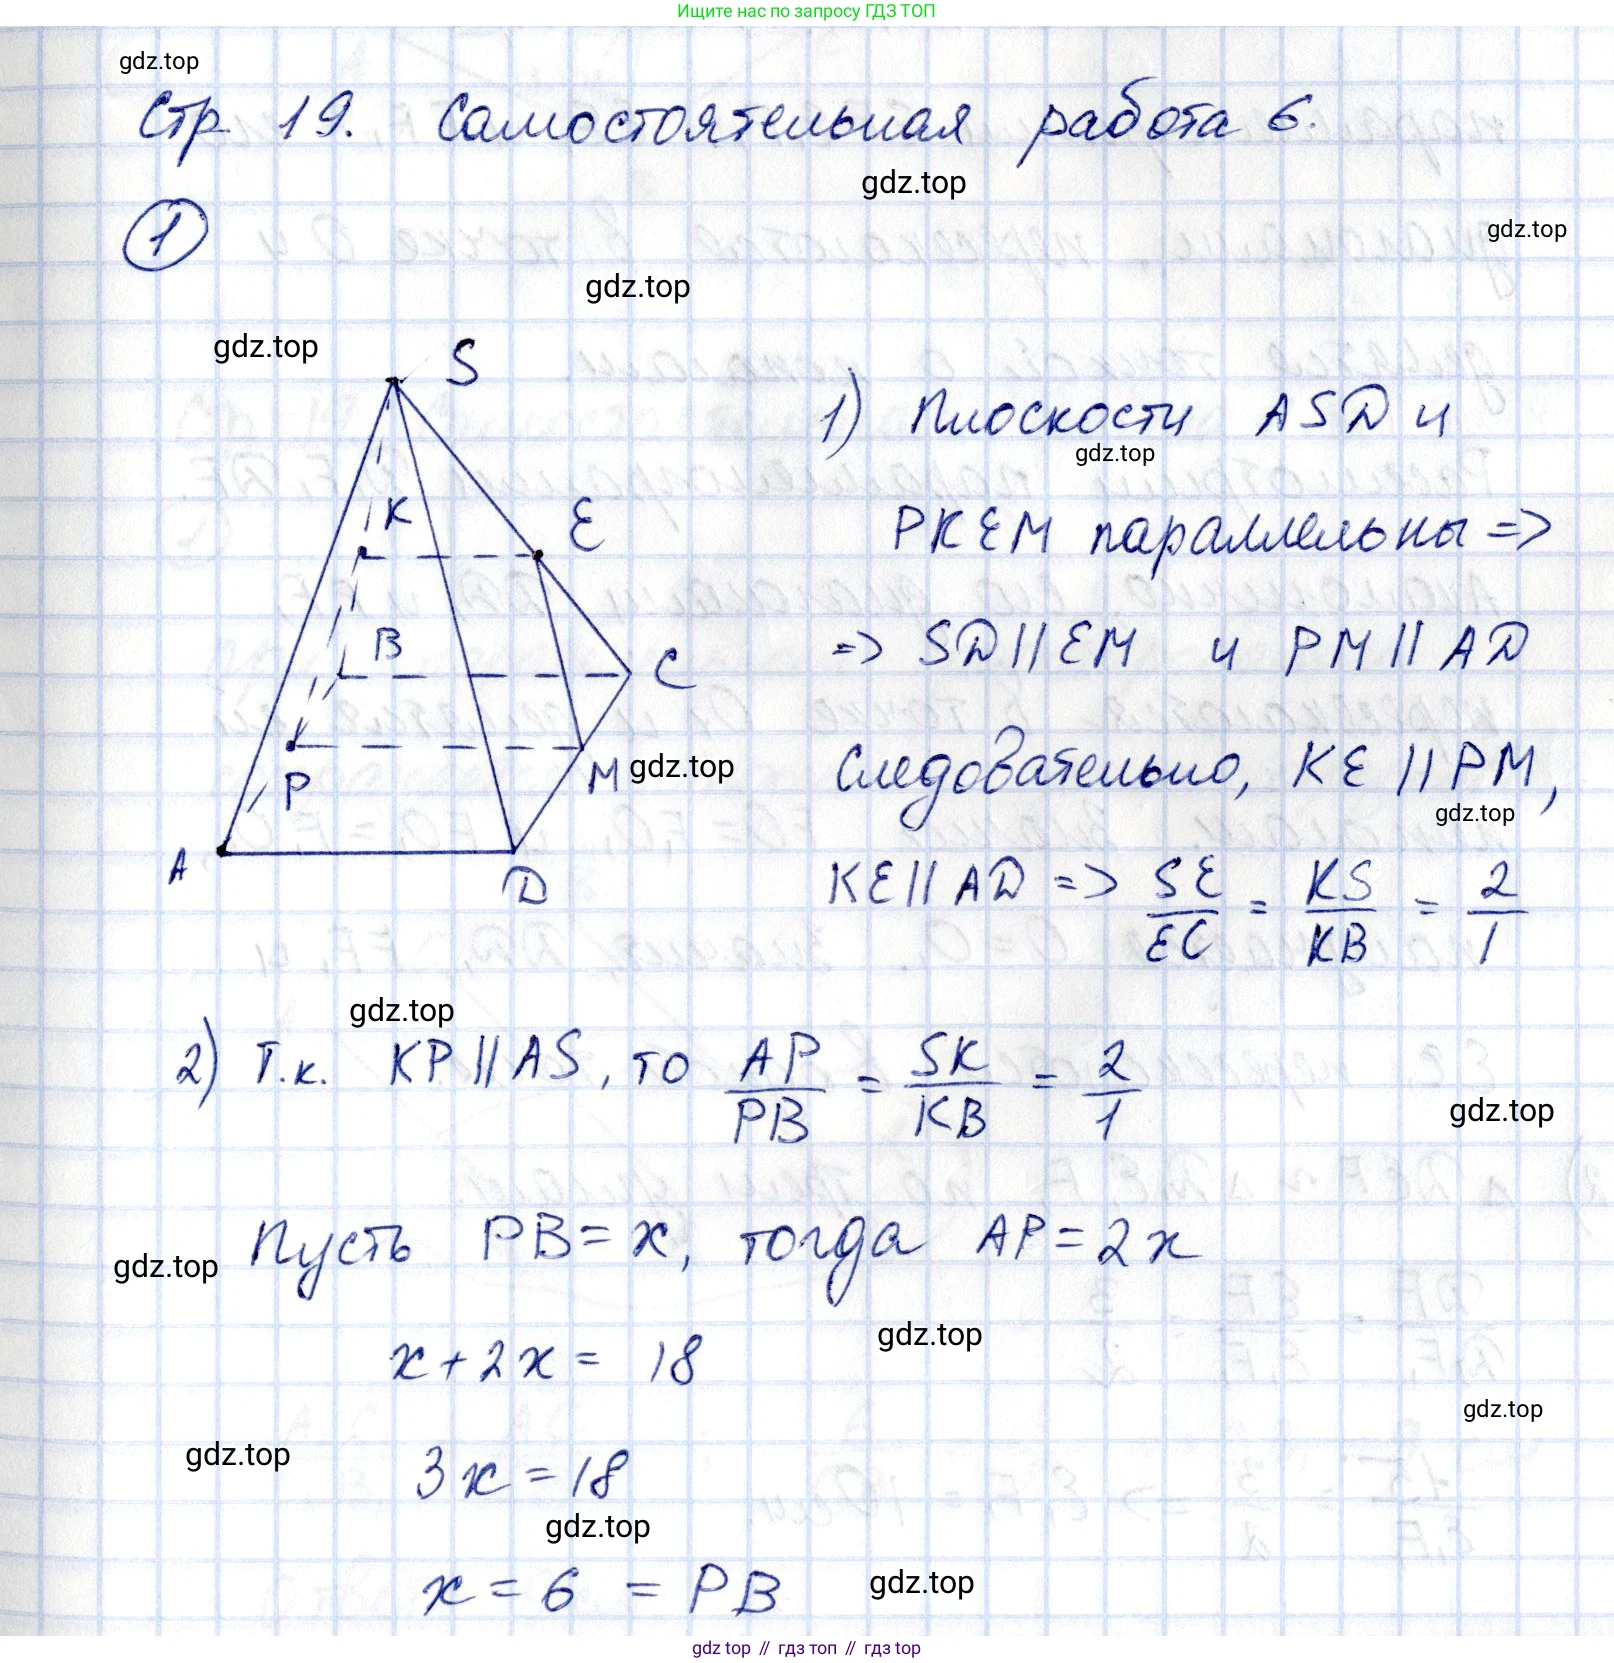 Ищите нас по запросу ГДЗ ТОП
gdz.top
Стр. 19. Самостоятельная работа 6.
gdz.top
1
gdz.top
gdz.top
gdz.top
S
1) Плоскости ASD и
gdz.top
K E
PKEM параллельны =>
B
C
=> SD || EM и PM || AD
P M
gdz.top
Следовательно, KE || PM,
gdz.top
A
D
KE || AD => SE/EC = KS/KB = 2/1
gdz.top
2) Т.к. KP || AS, то AP/PB = SK/KB = 2/1
gdz.top
Пусть PB = x, тогда AP = 2x
gdz.top
gdz.top
x + 2x = 18
gdz.top
gdz.top
3x = 18
gdz.top
x = 6 = PB
gdz.top
gdz top // гдз топ // гдз top